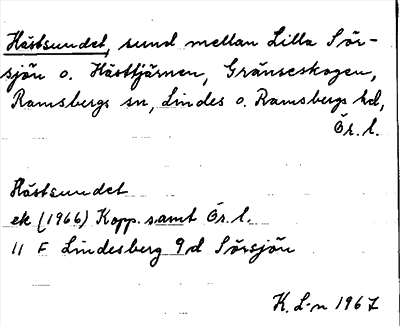 Hästsundet, sund mellan Lilla Sör-
sjön o. Hästtjärnen, Gränsskogen,
Ramsbergs sn, Lindes o. Ramsbergs hd,
Ör. l.
Hästsundet
ek (1966) Kopp. samt Ör. l.
11 F Lindesberg 9d Sörsjön
K. L-n 1967